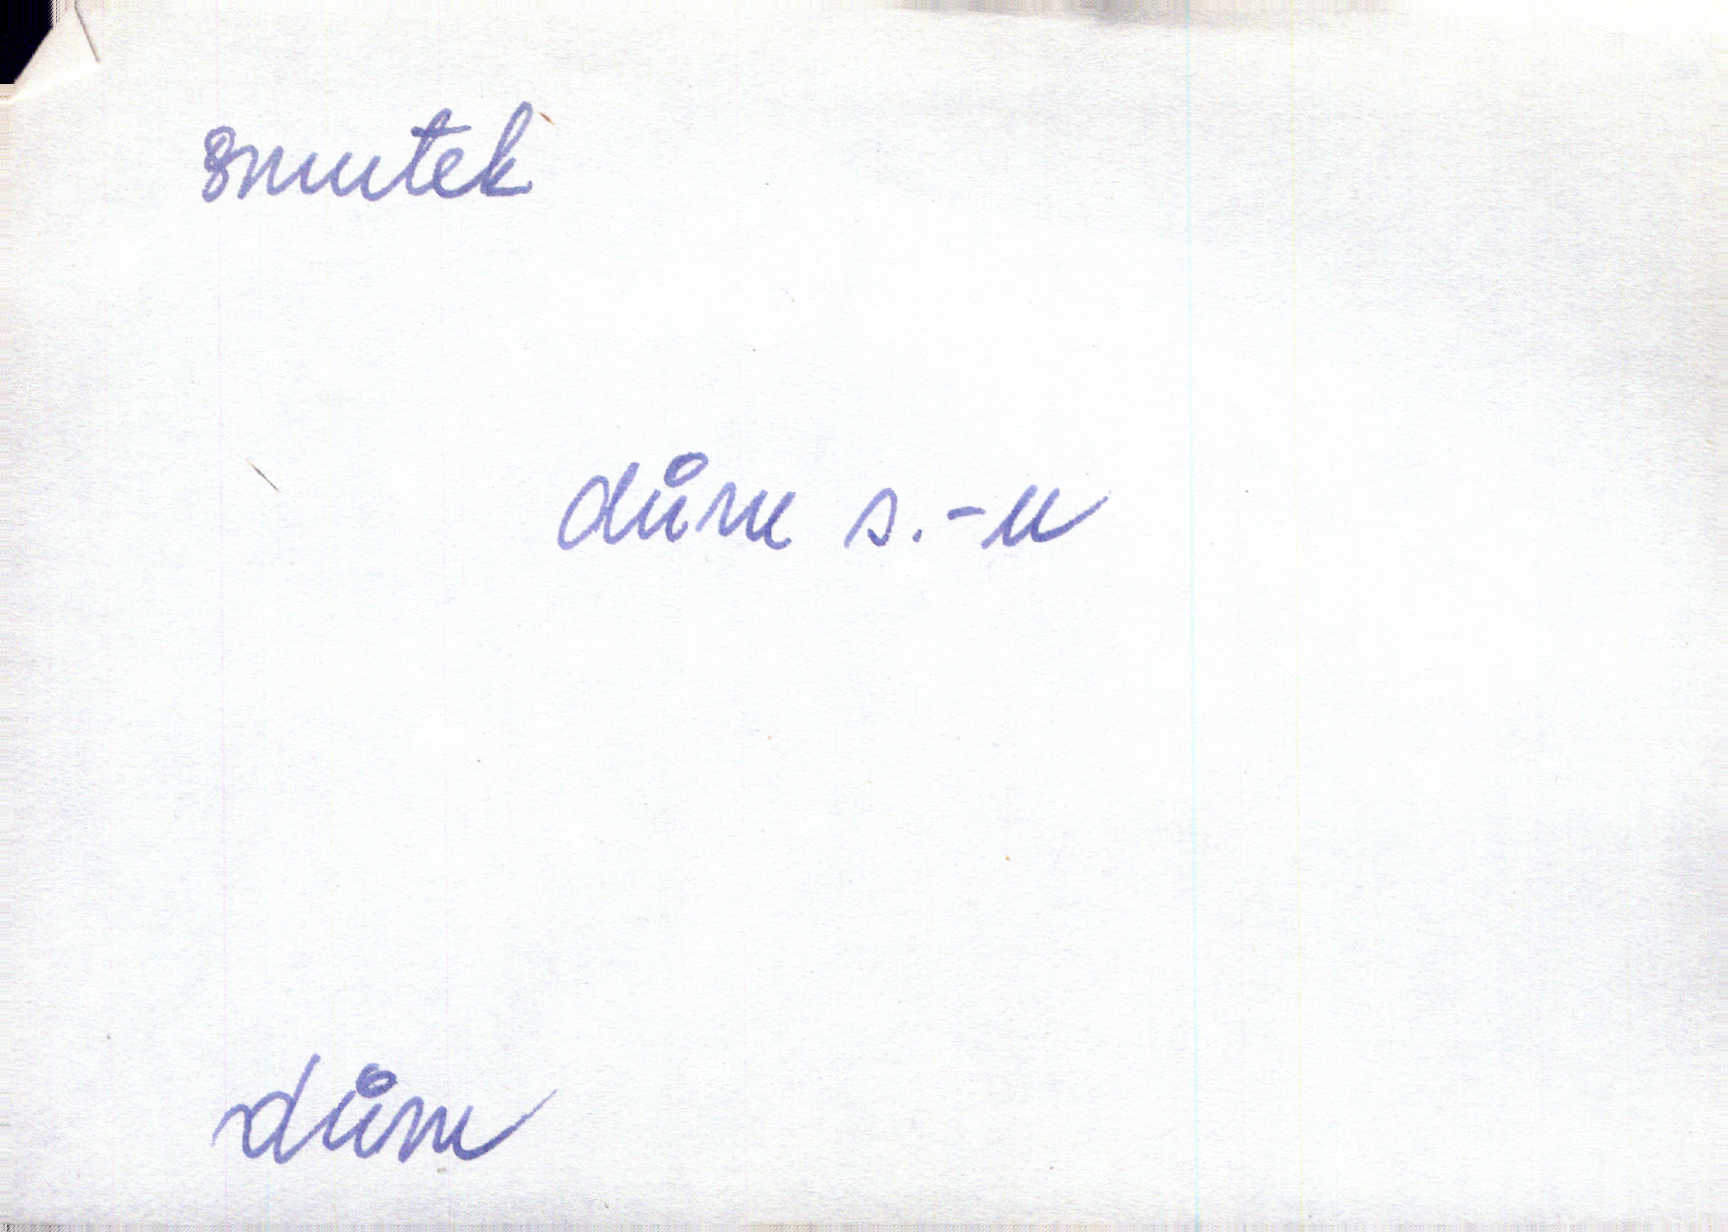 smutek
dům s.-u
dům